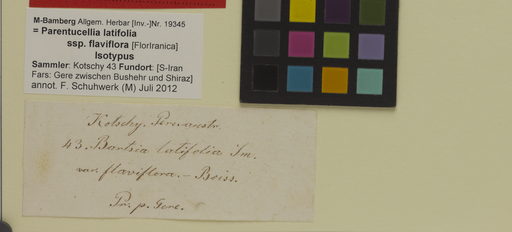 M-Bamberg Allgem. Herbar [Inv.-]Nr. 19345
= Parentucellia latifolia
ssp. flaviflora [FlorIranica]
Isotypus
Sammler: Kotschy 43 Fundort: [S-Iran
Fars: Gere zwischen Bushehr und Shiraz]
annot. F. Schuhwerk (M) Juli 2012
Kotschy.
43. Bartsia latifolia Sm.
var. flaviflora. - Boiss.
Pr. p. Gere.